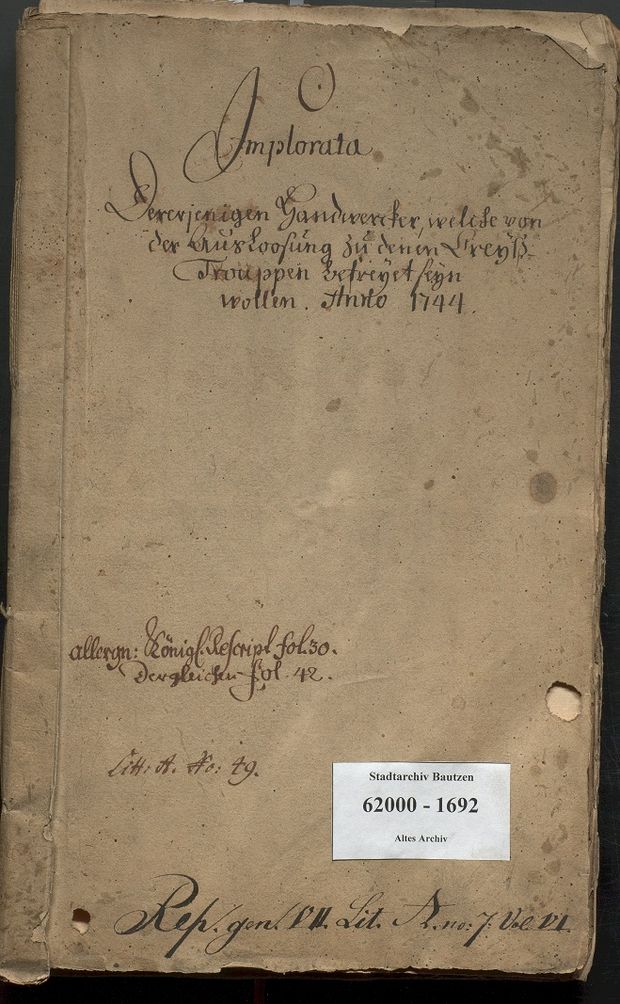 Implorata
Dererjenigen Handwercker, welche von
der Ausloosung zu denen Creyß-
Trouppen befreyet seyn
wollen. Anno 1744.
allergn: Königl. Rescript fol. 30.
Dergleichen fol. 42.
Litt: A. No: 49.
Stadtarchiv Bautzen
62000 - 1692
Altes Archiv
Rep. gen. VII. Lit. A. no: 7. Vol. VI.